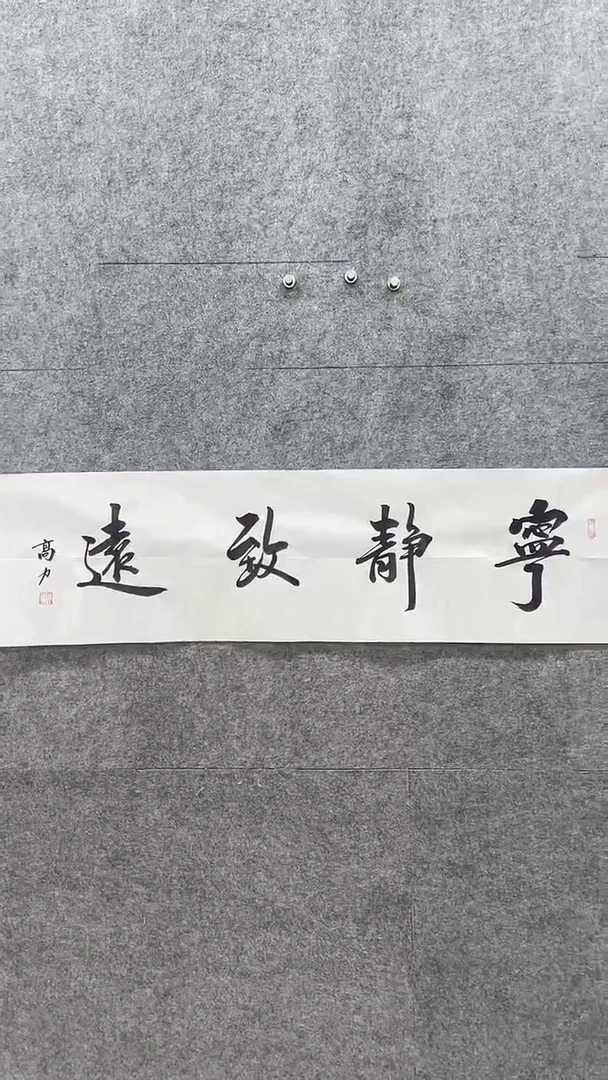 寧靜致遠
高力